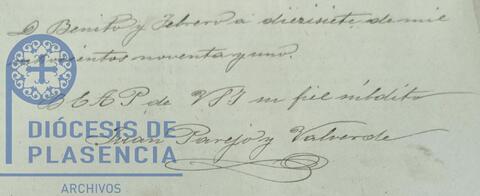 D. Benito y Febrero a diezisiete de mil
ochocientos noventa y uno.
B E A P de VSI su fiel súbdito
Juan Parejo y Valverde
DIÓCESIS DE
PLASENCIA
ARCHIVOS